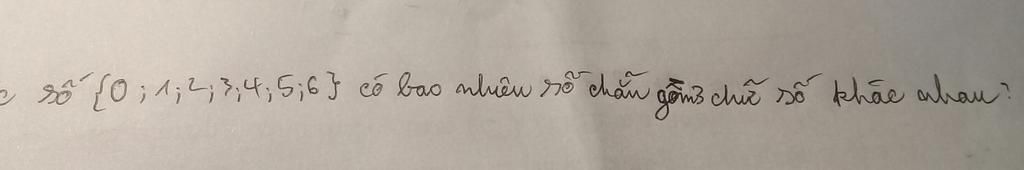 số {0;1;2;3;4;5;6} có bao nhiêu số chẵn gồm3 chữ số khác nhau?